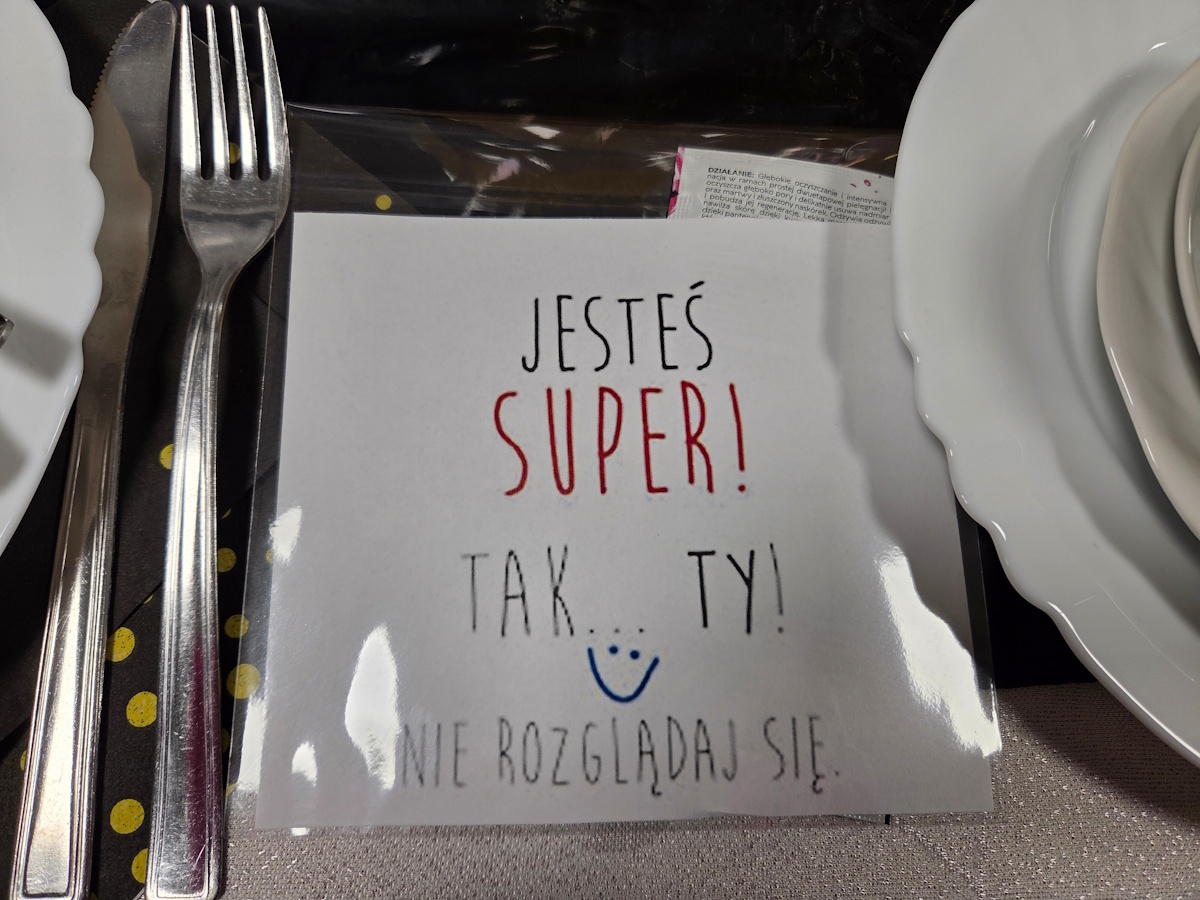 DZIAŁANIE: Głębokie oczyszczanie i intensywna
nacja w ramach prostej dwuetapowej pielęgnacji
oczyszcza głęboko pory i delikatnie usuwa nadmiar
oraz martwy i złuszczony naskórek. Odżywia
i pobudza jej regenerację. Lekka
nawilża skórę dzięki
dzięki
JESTEŚ
SUPER!
TAK... TY!
NIE ROZGLĄDAJ SIĘ.